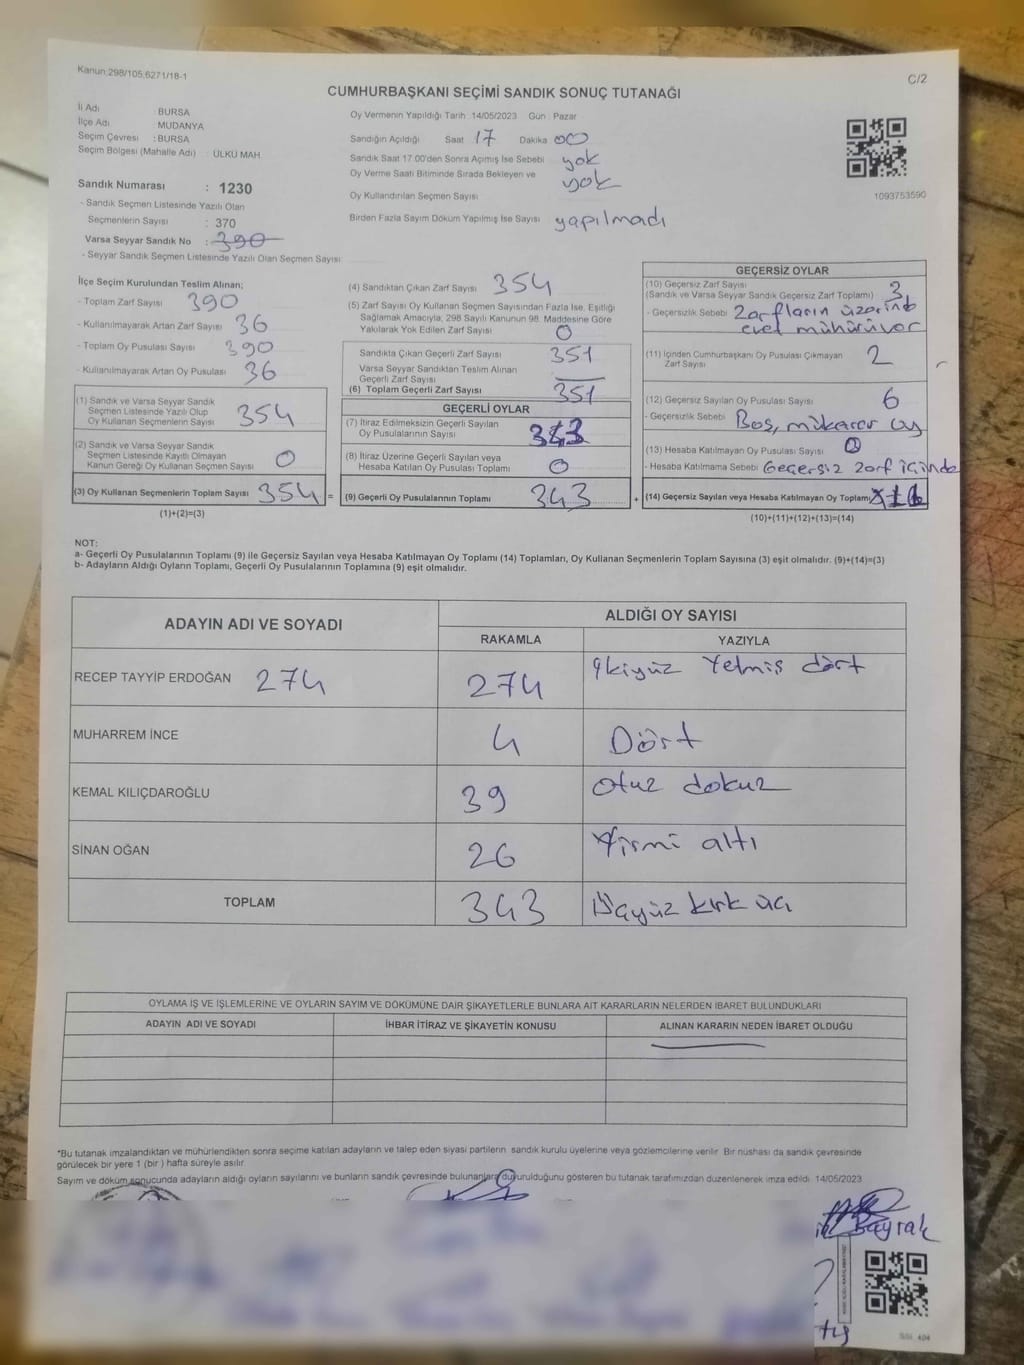 Kanun:298/105,6271/18-1
C/2
CUMHURBAŞKANI SEÇİMİ SANDIK SONUÇ TUTANAĞI
İl Adı BURSA
İlçe Adı MUDANYA
Seçim Çevresi : BURSA
Seçim Bölgesi (Mahalle Adı) : ÜLKÜ MAH
Sandık Numarası : 1230
- Sandık Seçmen Listesinde Yazılı Olan
Seçmenlerin Sayısı : 370
Varsa Seyyar Sandık No : 390
- Seyyar Sandık Seçmen Listesinde Yazılı Olan Seçmen Sayısı:
Oy Vermenin Yapıldığı Tarih 14/05/2023 Gün Pazar
Sandığın Açıldığı Saat 17 Dakika 00
Sandık Saat 17.00'den Sonra Açımış İse Sebebi yok
Oy Verme Saati Bitiminde Sırada Bekleyen ve yok
Oy Kullandırılan Seçmen Sayısı
Birden Fazla Sayım Döküm Yapılmış İse Sayısı yapılmadı
1093753590
İlçe Seçim Kurulundan Teslim Alınan;
- Toplam Zarf Sayısı 390
- Kullanılmayarak Artan Zarf Sayısı 36
- Toplam Oy Pusulası Sayısı 390
- Kullanılmayarak Artan Oy Pusulası 36
(1) Sandık ve Varsa Seyyar Sandık
Seçmen Listesinde Yazılı Olup
Oy Kullanan Seçmenlerin Sayısı 354
(2) Sandık ve Varsa Seyyar Sandık
Seçmen Listesinde Kayıtlı Olmayan
Kanun Gereği Oy Kullanan Seçmen Sayısı 0
(3) Oy Kullanan Seçmenlerin Toplam Sayısı 354 =
(1)+(2)=(3)
(4) Sandıktan Çıkan Zarf Sayısı 354
(5) Zarf Sayısı Oy Kullanan Seçmen Sayısından Fazla İse, Eşitliği
Sağlamak Amacıyla, 298 Sayılı Kanunun 98. Maddesine Göre
Yakılarak Yok Edilen Zarf Sayısı 0
Sandıkta Çıkan Geçerli Zarf Sayısı 351
Varsa Seyyar Sandıktan Teslim Alınan
Geçerli Zarf Sayısı
(6) Toplam Geçerli Zarf Sayısı 351
GEÇERLİ OYLAR
(7) İtiraz Edilmeksizin Geçerli Sayılan
Oy Pusulalarının Sayısı 343
(8) İtiraz Üzerine Geçerli Sayılan veya
Hesaba Katılan Oy Pusulası Toplamı 0
(9) Geçerli Oy Pusulalarının Toplamı 343 +
GEÇERSİZ OYLAR
(10) Geçersiz Zarf Sayısı
(Sandık ve Varsa Seyyar Sandık Geçersiz Zarf Toplamı) 3
- Geçersizlik Sebebi Zarfların üzerinde
evet mühürüvar
(11) İçinden Cumhurbaşkanı Oy Pusulası Çıkmayan
Zarf Sayısı 2
(12) Geçersiz Sayılan Oy Pusulası Sayısı 6
- Geçersizlik Sebebi Boş, mükerrer oy
(13) Hesaba Katılmayan Oy Pusulası Sayısı
- Hesaba Katılmama Sebebi Geçersiz zarf içinde
(14) Geçersiz Sayılan veya Hesaba Katılmayan Oy Toplamı
(10)+(11)+(12)+(13)=(14)
NOT:
a- Geçerli Oy Pusulalarının Toplamı (9) ile Geçersiz Sayılan veya Hesaba Katılmayan Oy Toplamı (14) Toplamları, Oy Kullanan Seçmenlerin Toplam Sayısına (3) eşit olmalıdır. (9)+(14)=(3)
b- Adayların Aldığı Oyların Toplamı, Geçerli Oy Pusulalarının Toplamına (9) eşit olmalıdır.
ADAYIN ADI VE SOYADI
ALDIĞI OY SAYISI
RAKAMLA YAZIYLA
RECEP TAYYİP ERDOĞAN 274 274 İkiyüz Yetmiş dört
MUHARREM İNCE 4 Dört
KEMAL KILIÇDAROĞLU 39 otuz dokuz
SİNAN OĞAN 26 Yirmi altı
TOPLAM 343 Üçyüz kırk üç
OYLAMA İŞ VE İŞLEMLERİNE VE OYLARIN SAYIM VE DÖKÜMÜNE DAİR ŞİKAYETLERLE BUNLARA AİT KARARLARIN NELERDEN İBARET BULUNDUKLARI
ADAYIN ADI VE SOYADI İHBAR İTİRAZ VE ŞİKAYETİN KONUSU ALINAN KARARIN NEDEN İBARET OLDUĞU
*Bu tutanak imzalandıktan ve mühürlendikten sonra seçime katılan adayların ve talep eden siyasi partilerin sandık kurulu üyelerine veya gözlemcilerine verilir. Bir nüshası da sandık çevresinde
görülecek bir yere 1 (bir) hafta süreyle asılır.
Sayım ve döküm sonucunda adayların aldığı oyların sayılarını ve bunların sandık çevresinde bulunanlara duyurulduğunu gösteren bu tutanak tarafımızdan düzenlenerek imza edildi. 14/05/2023
Bayrak